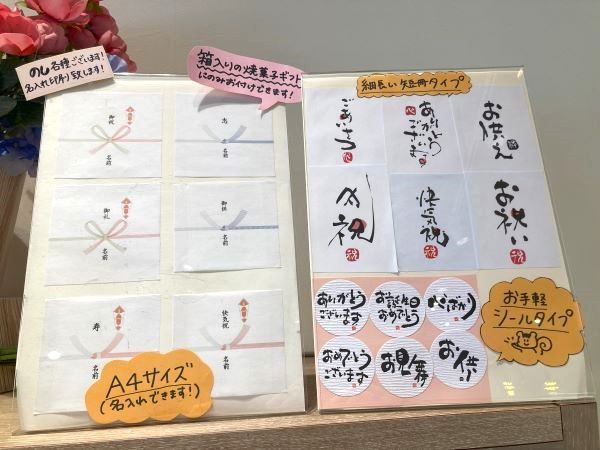 のし各種ございます!
名入れ印刷り致します!
箱入りの焼菓子ギフト
にのみお付けできます!
御祝
名前
志
名前
御礼
名前
御供
名前
寿
名前
快気祝
名前
A4サイズ
(名入れできます!)
細長い短冊タイプ
ごあいさつ
ありがとう
ございます
お供え
内祝
快気祝
お祝い
ありがとう
ございます
お誕生日
おめでとう
心ばかり
おめでとう
ございます
お見舞
お供
お手軽
シールタイプ